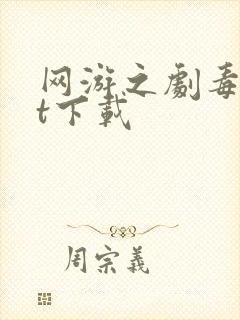 网游之劇毒
t下载
周宗義